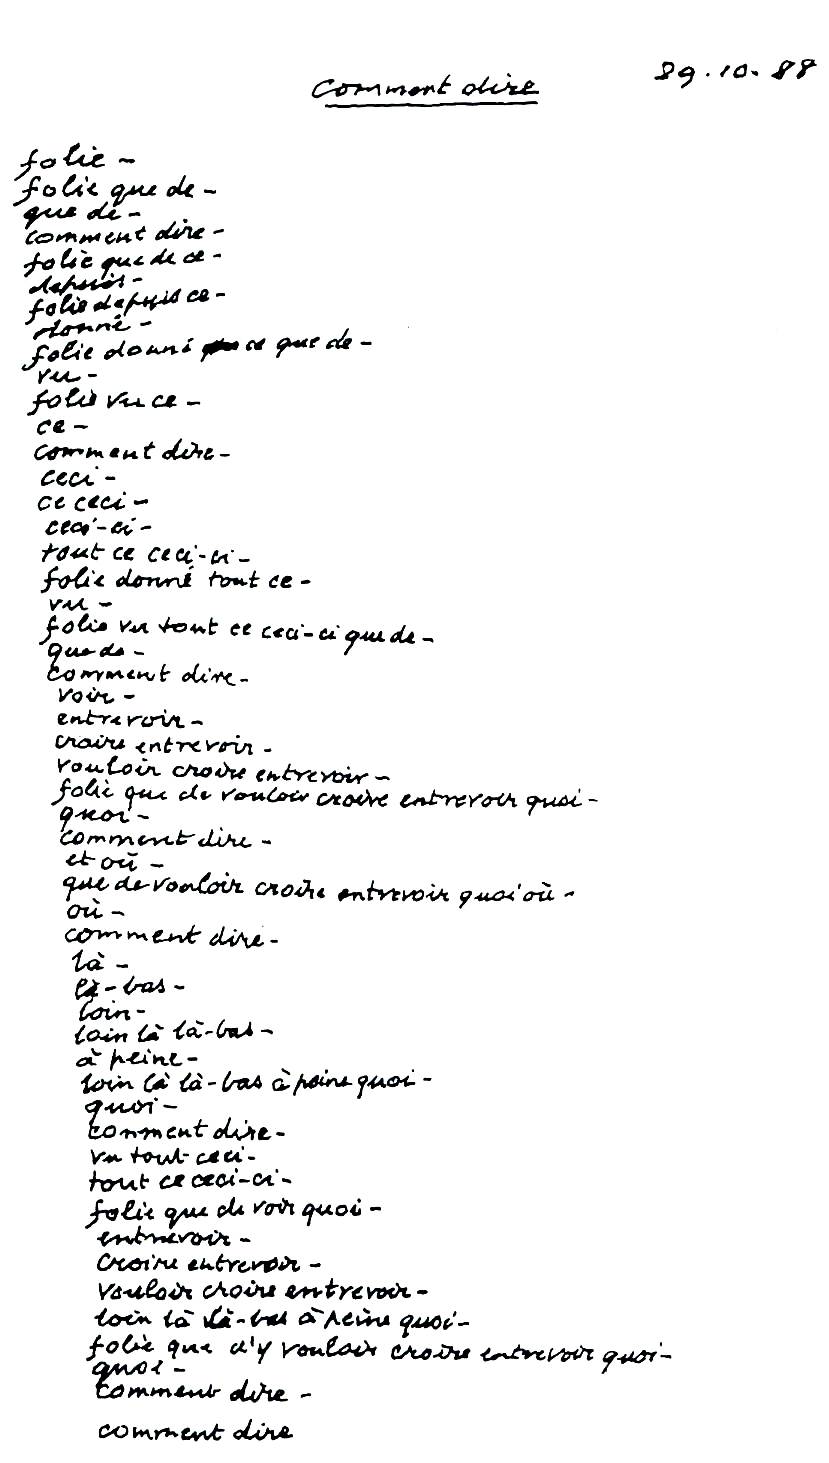 Comment dire
29.10.88
folie –
folie que de –
que de –
comment dire –
folie que de ce –
depuis –
folie depuis ce –
donné –
folie donné ce que de –
vu –
folie vu ce –
ce –
comment dire –
ceci –
ce ceci –
ceci-ci –
tout ce ceci-ci –
folie donné tout ce –
vu –
folie vu tout ce ceci-ci que de –
que de –
comment dire –
voir –
entrevoir –
croire entrevoir –
vouloir croire entrevoir –
folie que de vouloir croire entrevoir quoi –
quoi –
comment dire –
et où –
que de vouloir croire entrevoir quoi où –
où –
comment dire –
là –
là-bas –
loin –
loin là là-bas –
à peine –
loin là là-bas à peine quoi –
quoi –
comment dire –
vu tout ceci –
tout ce ceci-ci –
folie que de voir quoi –
entrevoir –
croire entrevoir –
vouloir croire entrevoir –
loin là là-bas à peine quoi –
folie que d'y vouloir croire entrevoir quoi –
quoi –
comment dire –
comment dire